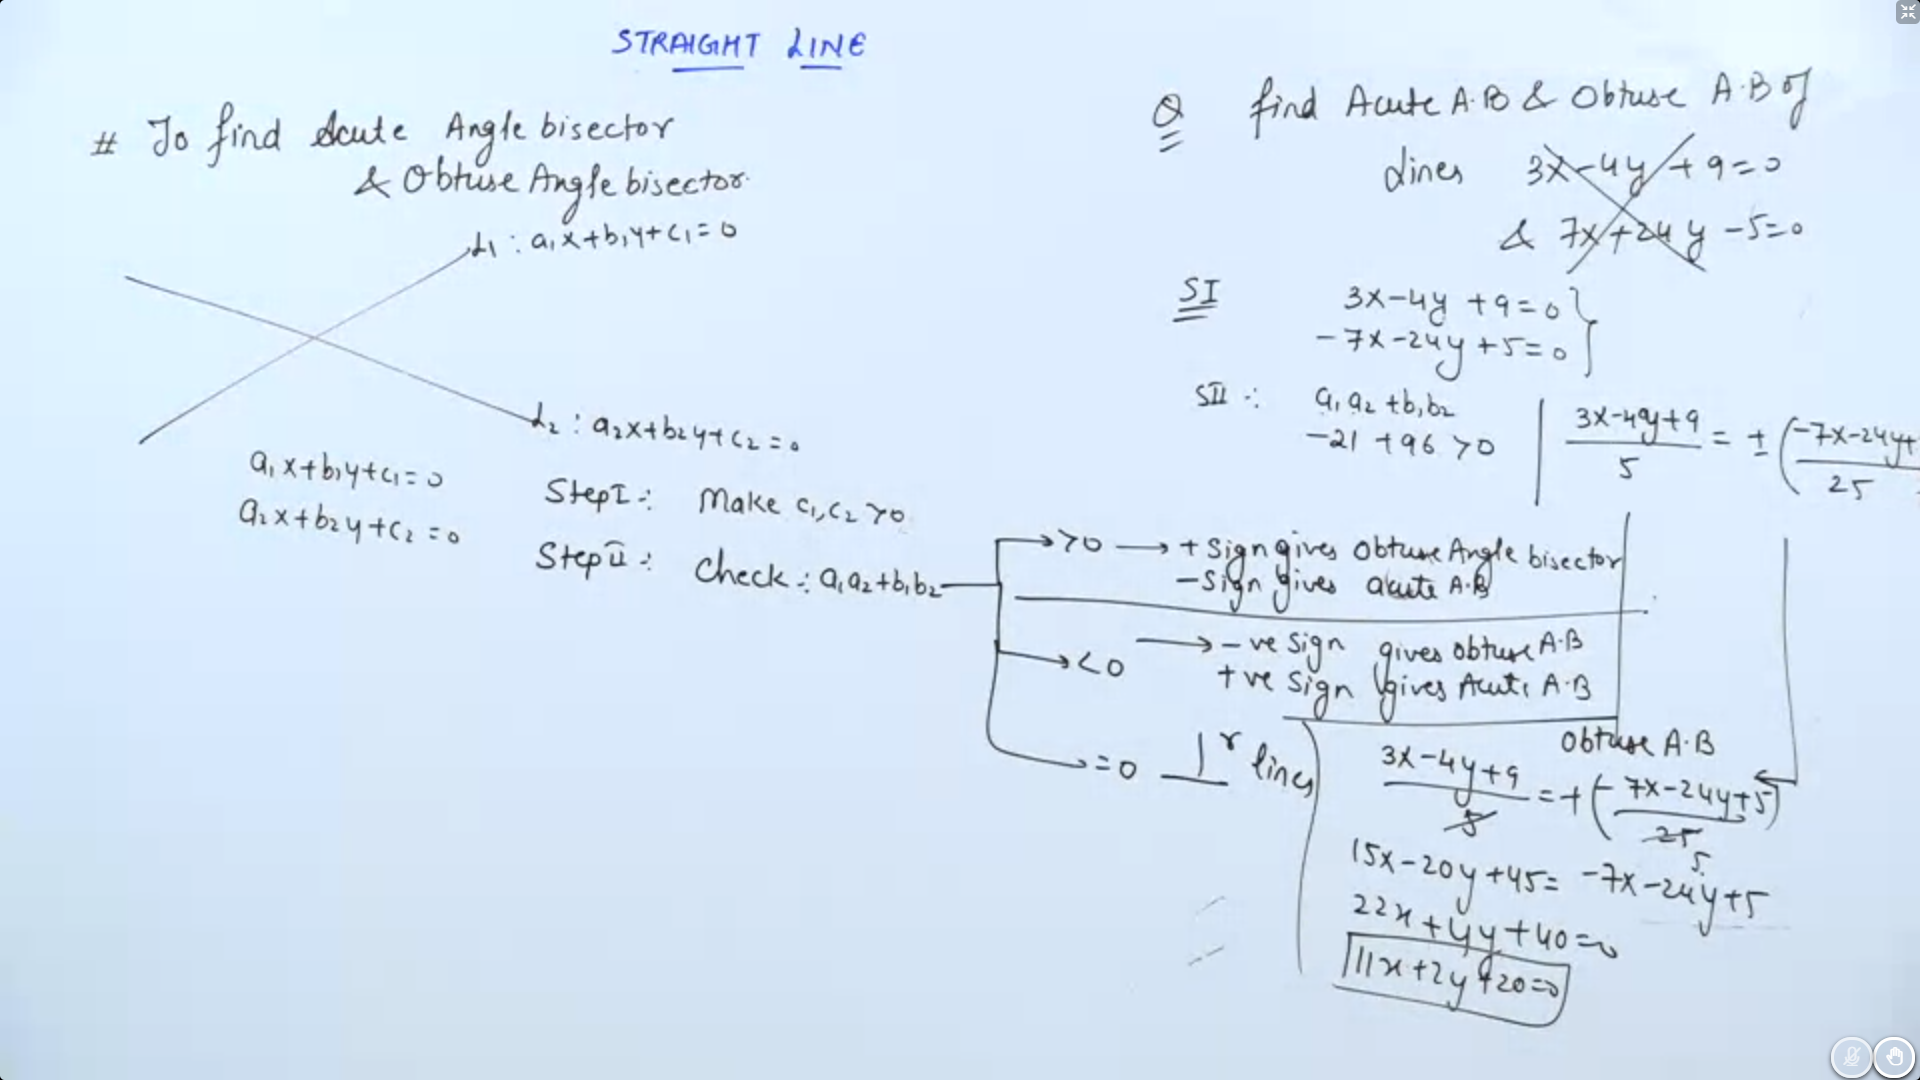 STRAIGHT LINE
# To find Acute Angle bisector
& Obtuse Angle bisector.
L₁ : a₁x+b₁y+c₁=0
L₂ : a₂x+b₂y+c₂=0
a₁x+b₁y+c₁=0
a₂x+b₂y+c₂=0
Step I :- Make c₁,c₂>0
Step II :- Check :- a₁a₂+b₁b₂
>0 → + Sign gives Obtuse Angle bisector
- Sign gives acute A.B
<0 → -ve Sign gives obtuse A.B
+ve Sign gives Acute A.B
=0 ⊥ʳ lines
Q find Acute A.B & Obtuse A.B of
Lines 3x-4y+9=0
& 7x+24y-5=0
SI 3x-4y+9=0
-7x-24y+5=0
SII :- a₁a₂+b₁b₂
-21+96>0
3x-4y+9 = ± (-7x-24y+
5 25
Obtuse A.B
3x-4y+9 = + (-7x-24y+5)
5 25
5
15x-20y+45= -7x-24y+5
22x+4y+40=0
11x+2y+20=0